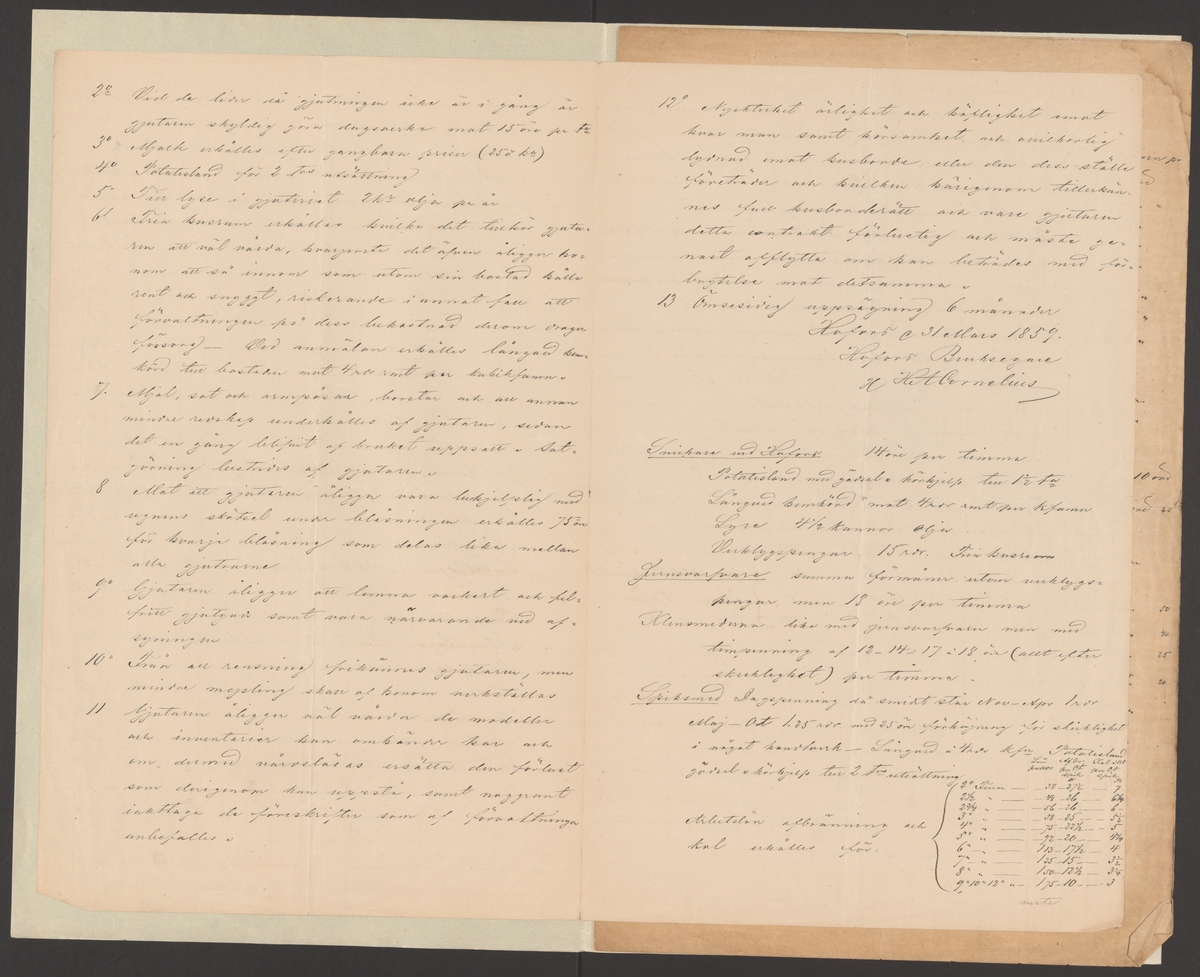 2o Vid de tider då gjutningen icke är i gång är
gjutaren skyldig göra dagsverke mot 15 öre pr tm
3o Mjölk erhålles efter gångbara priser (250 kr)
4o Potatisland för 2 trs utsättning
5o Fritt lyse i gjuteriet 2 kr olja pr år
6o Fria husrum erhålles hvilka det tillhör gjuta-
ren att väl vårda, hvarjemte det äfven åligger ho-
nom att så innom som utom sin bostad hålla
rent och snyggt, riskerande i annat fall att
förvaltningen på dess bekostnad derom drager
försorg — Ved anmälan erhålles långved hem-
körd till bostaden mot 4 rdr rmt per kubikfamn.
7. Mjöl, sot och armpåsar, borstar och all annan
mindre redskap underhålles af gjutaren, sedan
det en gång blifvit af bruket uppsatt. Sot-
göring bestrides af gjutaren.
8 Mot att gjutaren åligger vara behjelplig med
ugnens skötsel under blåsningen erhålles 75 öre
för hvarje blåsning som delas lika mellan
alla gjutarne
9o Gjutaren åligger att lemna vackert och fel-
fritt gjutgods samt vara närvarande vid af-
syningen
10o Från all rensning frikännes gjutaren, men
mindre mejsling skall af honom verkställas
11 Gjutaren åligger väl vårda de modeller
och inventarier han omhänder har och
om dermed vårdslösas ersätta den förlust
som derigenom kan uppstå, samt noggrant
iakttaga de föreskrifter som af förvaltningen
anbefalles.
12o Nykterhet ärlighet och höflighet emot
hvar man samt hörsamhet och ovilkorlig
lydnad emot husbonde eller den dess ställe
företräder och hvilken härigenom tillerkän-
nes full husbonderätt och vare gjutaren
detta contrakt förlustig och måste ge-
nast afflytta om han beträdes med för-
brytelse mot detsamma.
13 Ömsesidig uppsägning 6 månader
Hofors d 31 Mars 1859.
Hofors Bruksegare
HA Cornelius
Snickare vid Hofors 14 öre per timma
Potatisland med gödsel o körhjelp till 1½ tnr
Långved hemkörd mot 4 rdr rmt per kfamn
Lyse 4½ kannor olja
Verktygspengar 15 rdr. Fria husrum
Jernsvarfvare samma förmåner utom verktygs-
pengar men 18 öre per timma
Klensmederna lika med jernsvarfvare men med
timpenning af 12–14–17 à 18 öre (allt efter
skicklighet) per timma.
Spiksmed Dagspenning då smidet står Nov–Apr 1 rdr
Maj–Okt 1.25 rdr med 25 öre förhöjning för skicklighet
i något handtverk — Långved à 4 rdr kfn Potatisland
gödsel skörhjelp till 2 tnr utsättning
2" Tum — 38 — 27½ — 7
2½ " — 44 — 26 — 6½
2¾ " — 56 — 26 — 6
3" " — 58 — 25 — 5½
4" " — 75 — 22½ — 5
5" " — 92 — 20 — 4½
6" " — 113 — 17½ — 4
7" " — 135 — 15 — 3½
8" " — 150 — 12½ — 3¼
9" 10" 12" " — 175 — 10 — 3
Arbetslön afbränning och
kol erhålles för.